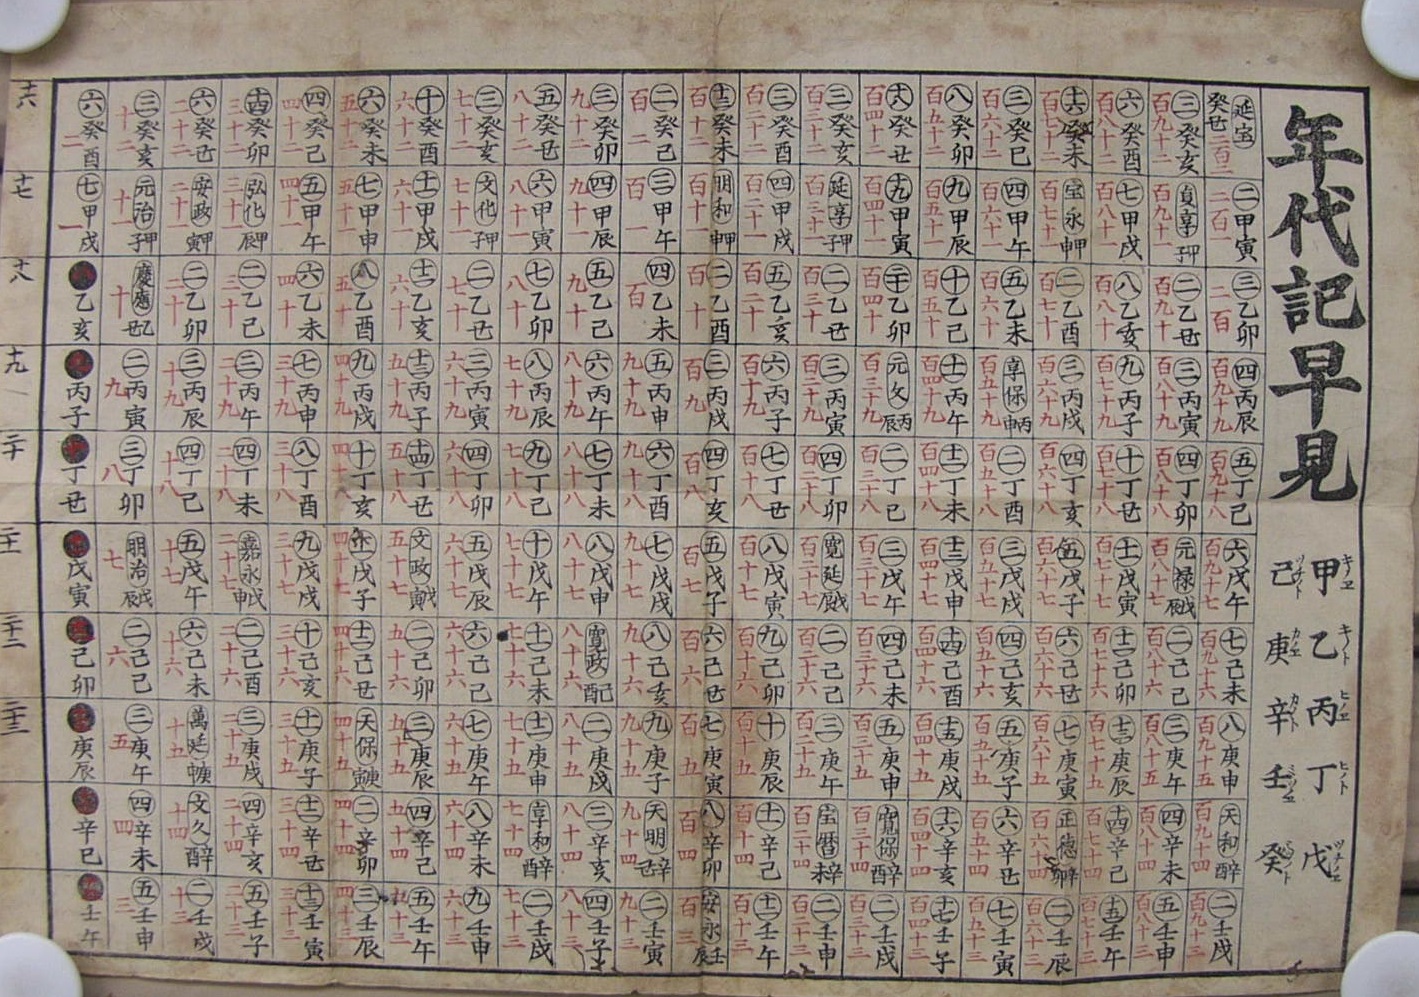 年代記早見
甲キノエ 乙キノト 丙ヒノエ 丁ヒノト 戊ツチノエ
己ツチノト 庚カノエ 辛カノト 壬ミツノエ 癸ミツノト
延宝癸丑二百二 二甲寅二百一 三乙卯二百 四丙辰百九十九 五丁巳百九十八 六戊午百九十七 七己未百九十六 八庚申百九十五 天和辛酉百九十四 二壬戌百九十三
三癸亥百九十二 貞享甲子百九十一 二乙丑百九十 三丙寅百八十九 四丁卯百八十八 元禄戊辰百八十七 二己巳百八十六 三庚午百八十五 四辛未百八十四 五壬申百八十三
六癸酉百八十二 七甲戌百八十一 八乙亥百八十 九丙子百七十九 十丁丑百七十八 十一戊寅百七十七 十二己卯百七十六 十三庚辰百七十五 十四辛巳百七十四 十五壬午百七十三
十六癸未百七十二 宝永甲申百七十一 二乙酉百七十 三丙戌百六十九 四丁亥百六十八 五戊子百六十七 六己丑百六十六 七庚寅百六十五 正徳辛卯百六十四 二壬辰百六十三
三癸巳百六十二 四甲午百六十一 五乙未百六十 享保丙申百五十九 二丁酉百五十八 三戊戌百五十七 四己亥百五十六 五庚子百五十五 六辛丑百五十四 七壬寅百五十三
八癸卯百五十二 九甲辰百五十一 十乙巳百五十 十一丙午百四十九 十二丁未百四十八 十三戊申百四十七 十四己酉百四十六 十五庚戌百四十五 十六辛亥百四十四 十七壬子百四十三
十八癸丑百四十二 十九甲寅百四十一 二十乙卯百四十 元文丙辰百三十九 二丁巳百三十八 三戊午百三十七 四己未百三十六 五庚申百三十五 寛保辛酉百三十四 二壬戌百三十三
三癸亥百三十二 延享甲子百三十一 二乙丑百三十 三丙寅百二十九 四丁卯百二十八 寛延戊辰百二十七 二己巳百二十六 三庚午百二十五 宝暦辛未百二十四 二壬申百二十三
三癸酉百二十二 四甲戌百二十一 五乙亥百二十 六丙子百十九 七丁丑百十八 八戊寅百十七 九己卯百十六 十庚辰百十五 十一辛巳百十四 十二壬午百十三
十三癸未百十二 明和甲申百十一 二乙酉百十 三丙戌百九 四丁亥百八 五戊子百七 六己丑百六 七庚寅百五 八辛卯百四 安永壬辰百三
二癸巳百二 三甲午百一 四乙未百 五丙申九十九 六丁酉九十八 七戊戌九十七 八己亥九十六 九庚子九十五 天明辛丑九十四 二壬寅九十三
三癸卯九十二 四甲辰九十一 五乙巳九十 六丙午八十九 七丁未八十八 八戊申八十七 寛政己酉八十六 二庚戌八十五 三辛亥八十四 四壬子八十三
五癸丑八十二 六甲寅八十一 七乙卯八十 八丙辰七十九 九丁巳七十八 十戊午七十七 十一己未七十六 十二庚申七十五 享和辛酉七十四 二壬戌七十三
三癸亥七十二 文化甲子七十一 二乙丑七十 三丙寅六十九 四丁卯六十八 五戊辰六十七 六己巳六十六 七庚午六十五 八辛未六十四 九壬申六十三
十癸酉六十二 十一甲戌六十一 十二乙亥六十 十三丙子五十九 十四丁丑五十八 文政戊寅五十七 二己卯五十六 三庚辰五十五 四辛巳五十四 五壬午五十三
六癸未五十二 七甲申五十一 八乙酉五十 九丙戌四十九 十丁亥四十八 十一戊子四十七 十二己丑四十六 天保庚寅四十五 二辛卯四十四 三壬辰四十三
四癸巳四十二 五甲午四十一 六乙未四十 七丙申三十九 八丁酉三十八 九戊戌三十七 十己亥三十六 十一庚子三十五 十二辛丑三十四 十三壬寅三十三
十四癸卯三十二 弘化甲辰三十一 二乙巳三十 三丙午二十九 四丁未二十八 嘉永戊申二十七 二己酉二十六 三庚戌二十五 四辛亥二十四 五壬子二十三
六癸丑二十二 安政甲寅二十一 二乙卯二十 三丙辰十九 四丁巳十八 五戊午十七 六己未十六 萬延庚申十五 文久辛酉十四 二壬戌十三
三癸亥十二 元治甲子十一 慶應乙丑十 二丙寅九 三丁卯八 明治戊辰七 二己巳六 三庚午五 四辛未四 五壬申三
六癸酉二 七甲戌一 乙亥 丙子 丁丑 戊寅 己卯 庚辰 辛巳 壬午
十六 十七 十八 十九 二十 二十一 二十二 二十三